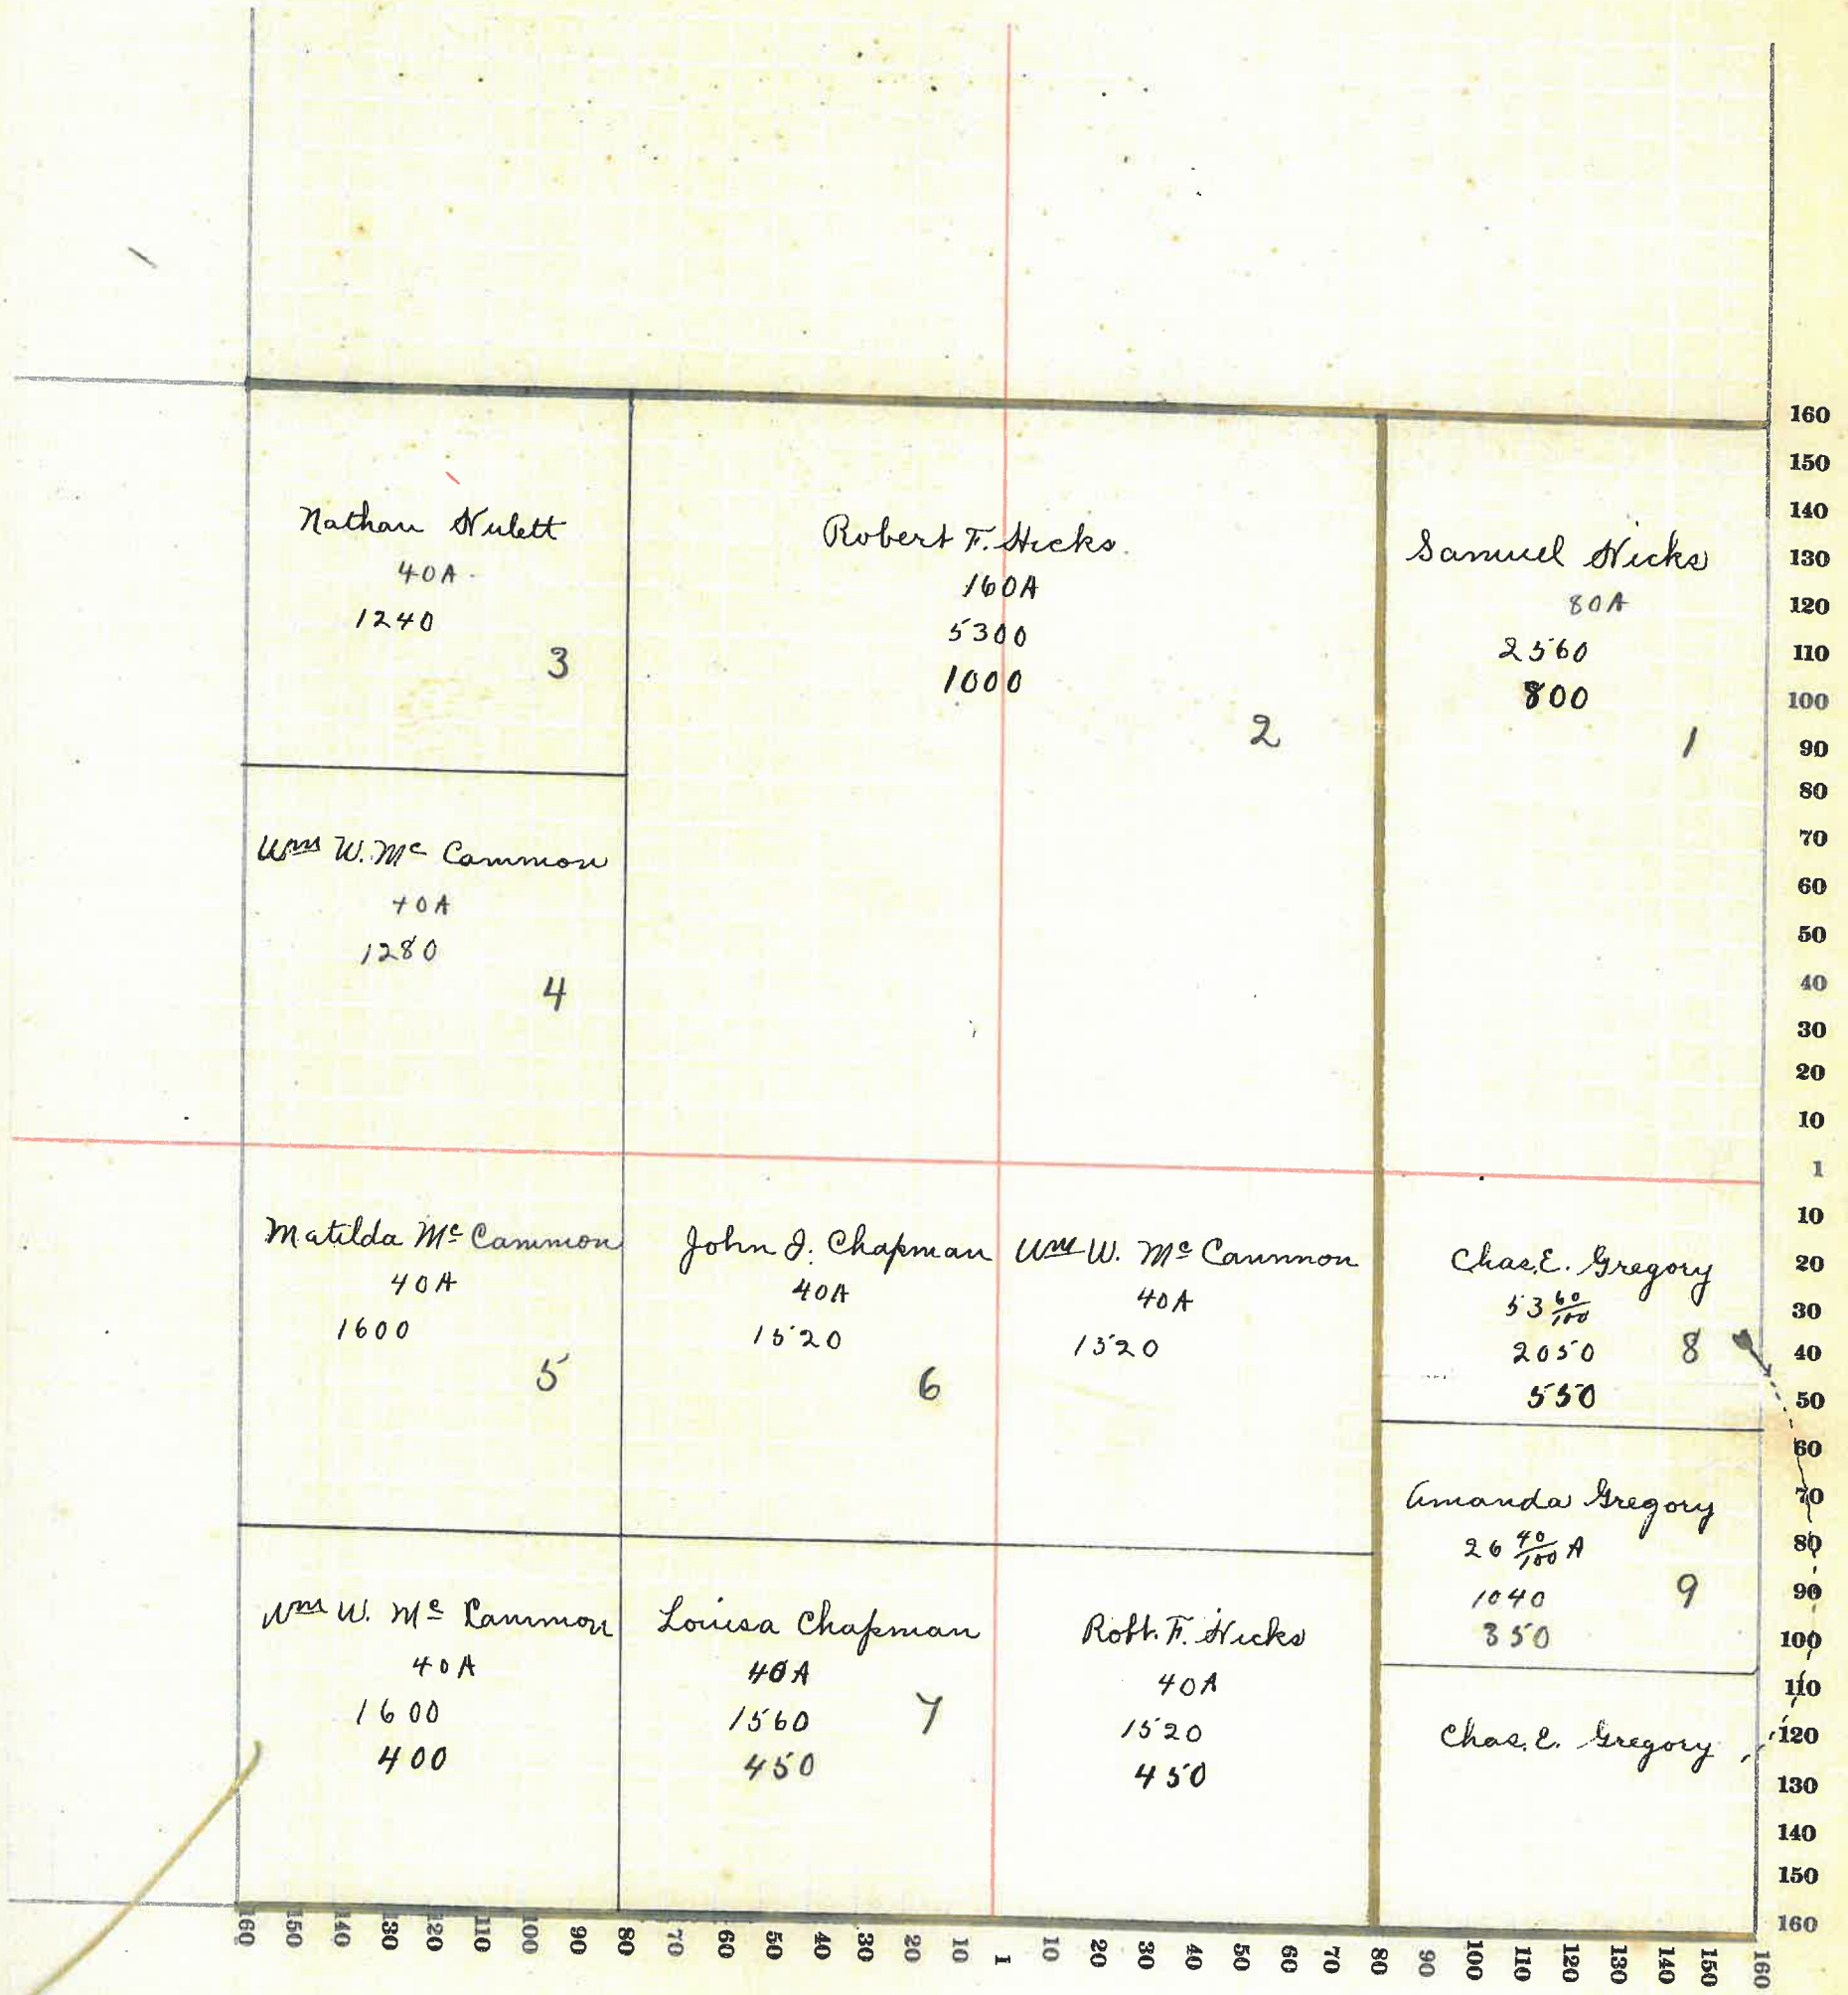 Nathan Hulett
40A
1240
3
Robert F. Hicks.
160A
5300
1000
2
Samuel Hicks
80A
2560
800
1
Wm W. Mc Cammon
40A
1280
4
Matilda Mc Cammon
40A
1600
5
John J. Chapman
40A
1520
6
Wm W. Mc Cammon
40A
1520
Chas. E. Gregory
53 60/100
2050
550
8
Amanda Gregory
26 40/100 A
1040
350
9
Wm W. Mc Cammon
40A
1600
400
Louisa Chapman
40A
1560
450
7
Robt. F. Hicks
40A
1520
450
Chas. E. Gregory
160
150
140
130
120
110
100
90
80
70
60
50
40
30
20
10
1
10
20
30
40
50
60
70
80
90
100
110
120
130
140
150
160
160 150 140 130 120 110 100 90 80 70 60 50 40 30 20 10 1 10 20 30 40 50 60 70 80 90 100 110 120 130 140 150 160